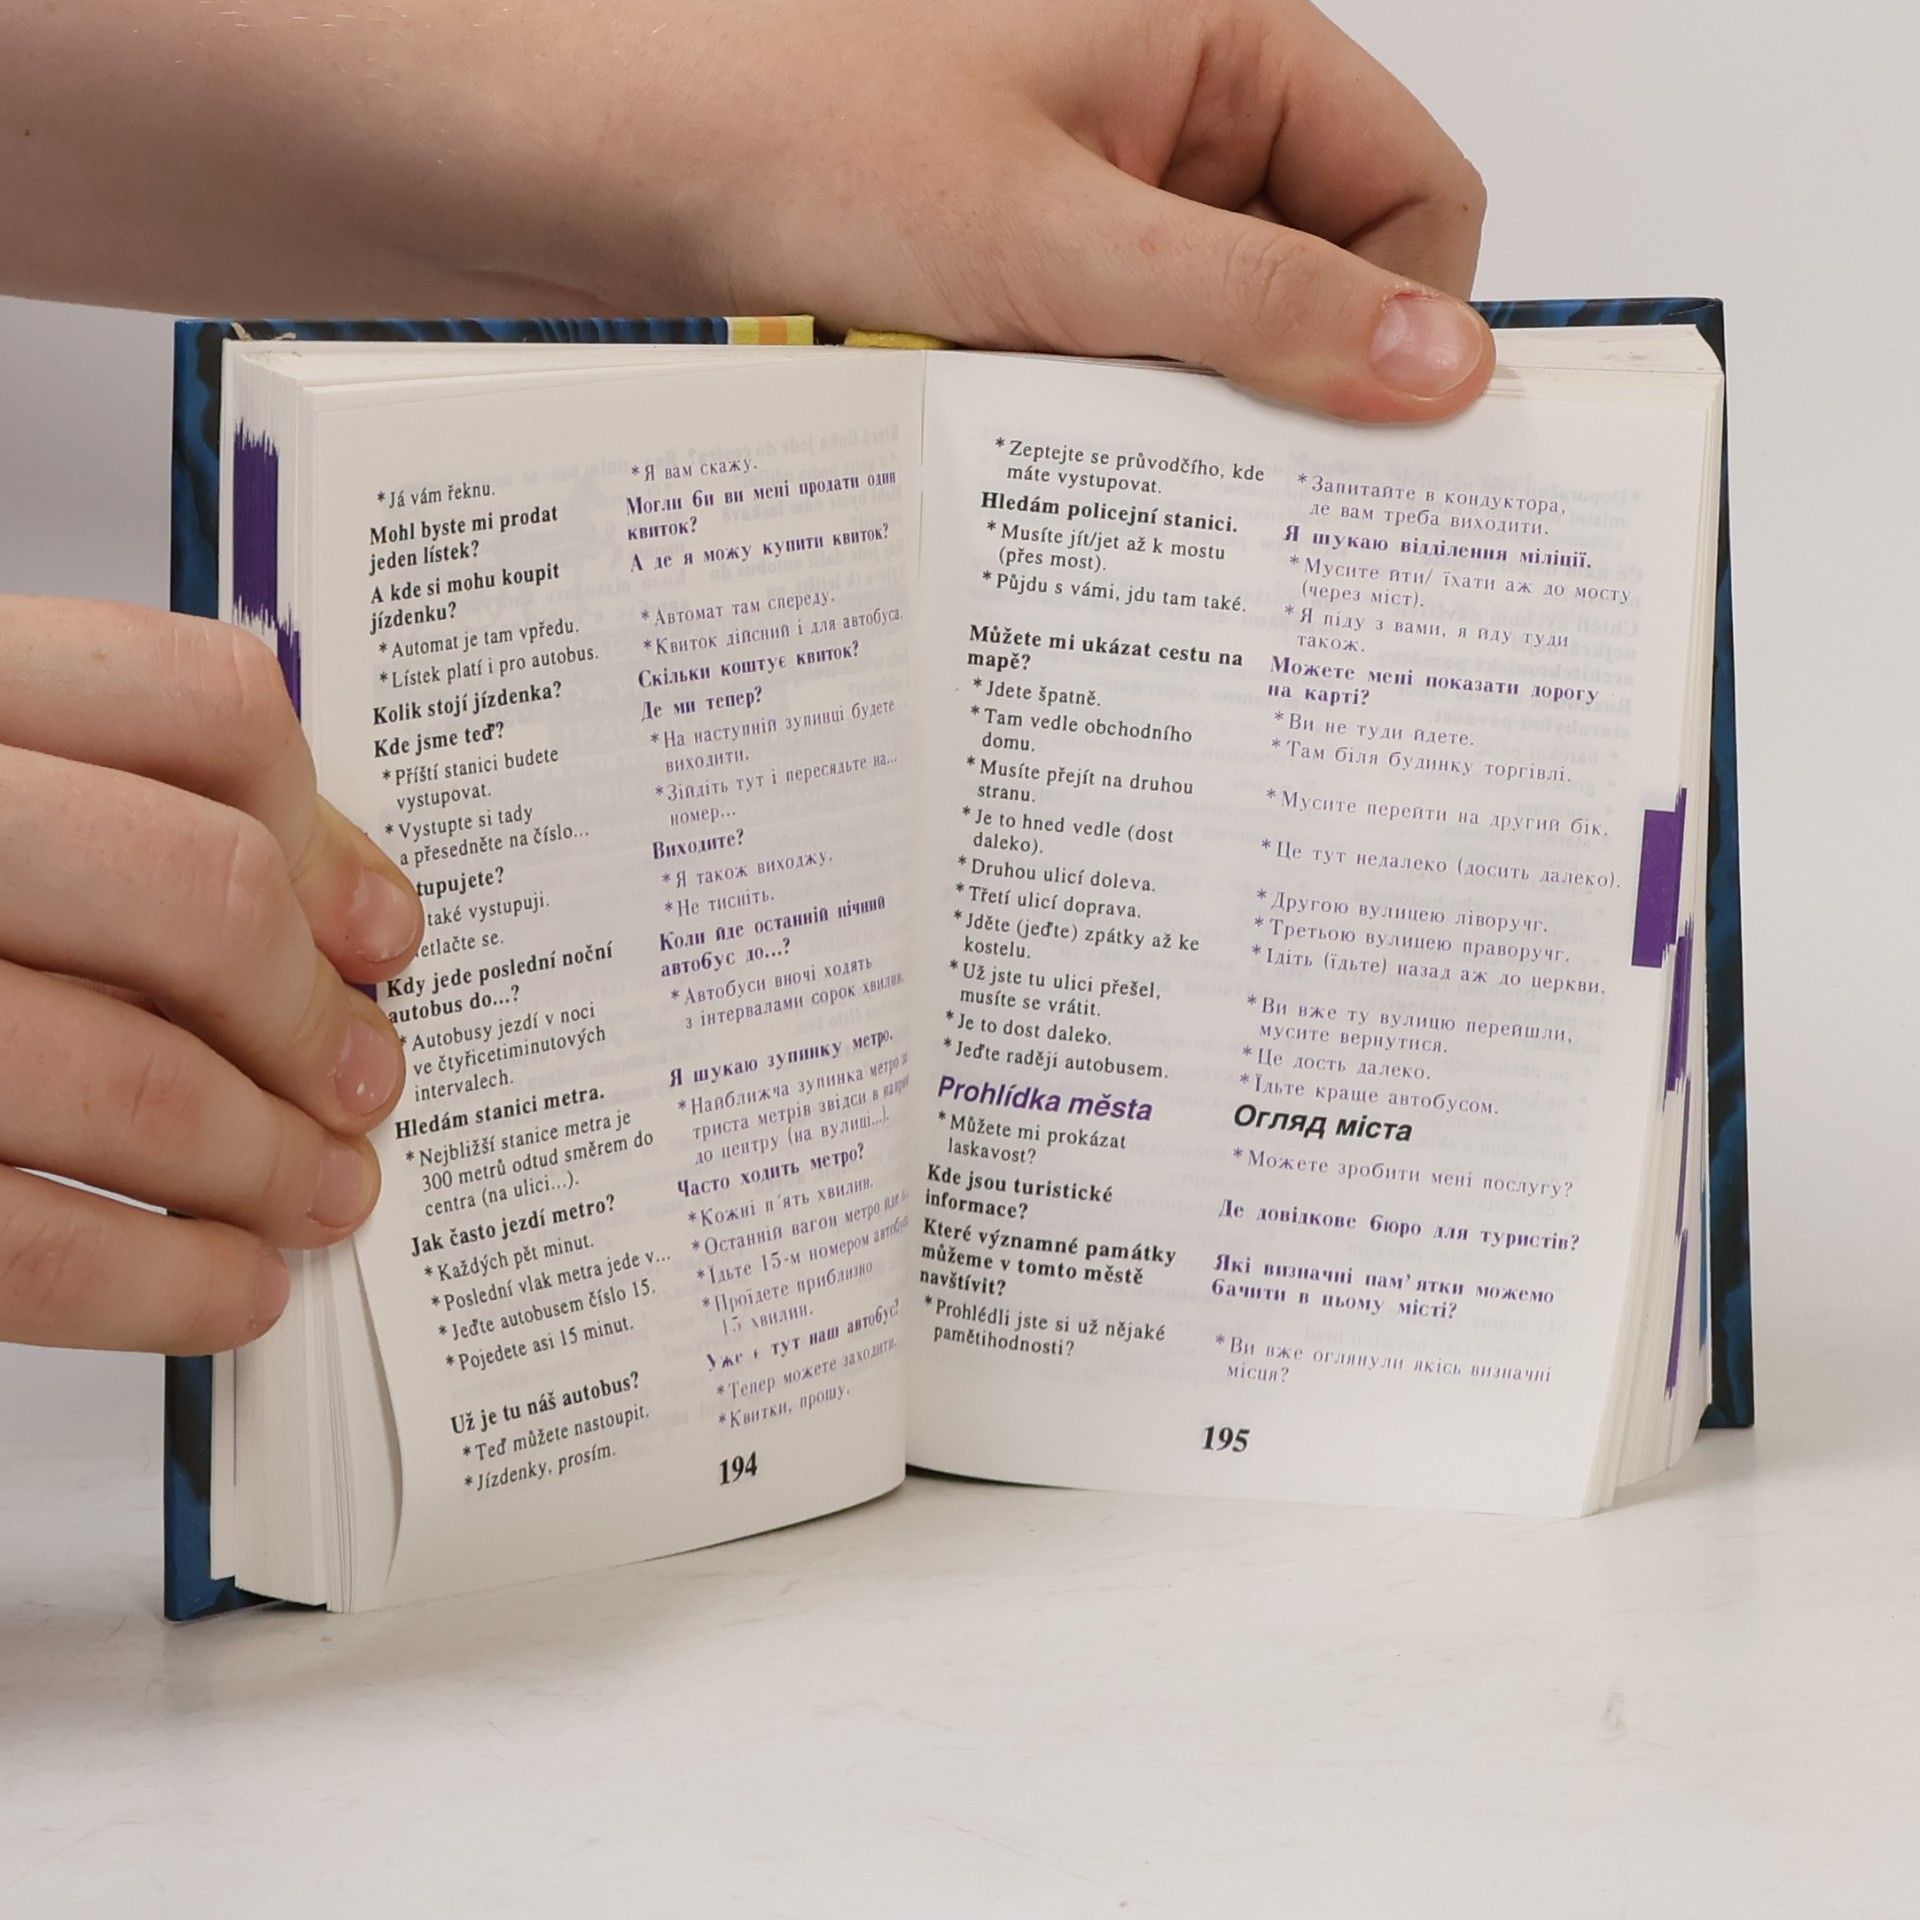 *Já vám řeknu.
Mohl byste mi prodat
jeden lístek?
A kde si mohu koupit
jízdenku?
*Automat je tam vpředu.
*Lístek platí i pro autobus.
Kolik stojí jízdenka?
Kde jsme teď?
*Příští stanici budete
vystupovat.
*Vystupte si tady
a přesedněte na číslo...
tupujete?
také vystupuji.
etlačte se.
Kdy jede poslední noční
autobus do...?
*Autobusy jezdí v noci
ve čtyřicetiminutových
intervalech.
Hledám stanici metra.
*Nejbližší stanice metra je
300 metrů odtud směrem do
centra (na ulici...).
Jak často jezdí metro?
*Každých pět minut.
*Poslední vlak metra jede v...
*Jeďte autobusem číslo 15.
*Pojedete asi 15 minut.
Už je tu náš autobus?
*Teď můžete nastoupit.
*Jízdenky, prosím.
*Я вам скажу.
Могли би ви мені продати один
квиток?
А де я можу купити квиток?
*Автомат там спереду.
*Квиток дійсний і для автобуса.
Скільки коштує квиток?
Де ми тепер?
*На наступній зупинці будете
виходити.
*Зійдіть тут і пересядьте на...
номер...
Виходите?
*Я також виходжу.
*Не тисніть.
Коли йде останній нічний
автобус до...?
*Автобуси вночі ходять
з інтервалами сорок хвилин.
Я шукаю зупинку метро.
*Найближча зупинка метро
триста метрів звідси в
до центру (на вулиці...).
Часто ходить метро?
*Кожні п'ять хвилин.
*Останній вагон метро йде
*Їдьте 15-м номером автобуса
*Проїдете приблизно
15 хвилин.
Уже є тут наш автобус?
*Тепер можете заходити.
*Квитки, прошу.
194
*Zeptejte se průvodčího, kde
máte vystupovat.
Hledám policejní stanici.
*Musíte jít/jet až k mostu
(přes most).
*Půjdu s vámi, jdu tam také.
Můžete mi ukázat cestu na
mapě?
*Jdete špatně.
*Tam vedle obchodního
domu.
*Musíte přejít na druhou
stranu.
*Je to hned vedle (dost
daleko).
*Druhou ulicí doleva.
*Třetí ulicí doprava.
*Jděte (jeďte) zpátky až ke
kostelu.
*Už jste tu ulici přešel,
musíte se vrátit.
*Je to dost daleko.
*Jeďte raději autobusem.
Prohlídka města
*Můžete mi prokázat
laskavost?
Kde jsou turistické
informace?
Které významné památky
můžeme v tomto městě
navštívit?
*Prohlédli jste si už nějaké
pamětihodnosti?
*Запитайте в кондуктора,
де вам треба виходити.
Я шукаю відділення міліції.
*Мусите йти/ їхати аж до мосту
(через міст).
*Я піду з вами, я йду туди
також.
Можете мені показати дорогу
на карті?
*Ви не туди йдете.
*Там біля будинку торгівлі.
*Мусите перейти на другий бік.
*Це тут недалеко (досить далеко).
*Другою вулицею ліворучг.
*Третьою вулицею праворучг.
*Ідіть (їдьте) назад аж до церкви.
*Ви вже ту вулицю перейшли,
мусите вернутися.
*Це дость далеко.
*Їдьте краще автобусом.
Огляд міста
*Можете зробити мені послугу?
Де довідкове бюро для туристів?
Які визначні пам'ятки можемо
бачити в цьому місті?
*Ви вже оглянули якісь визначні
місця?
195